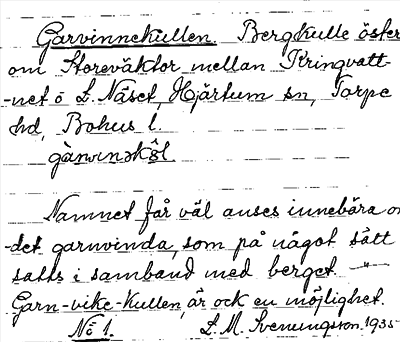 Garvinnekullen. Bergkulle öster
om Storeväktor mellan Kringvatt-
-net o L. Näset, Hjärtum sn, Torpe
hd, Bohus l.
Namnet får väl anses innebära o
-det garnvinda, som på något sätt
satts i samband med berget. —"—
Garn-vike-kullen, är ock en möjlighet.
No 1. L. M. Svenungsson. 1935